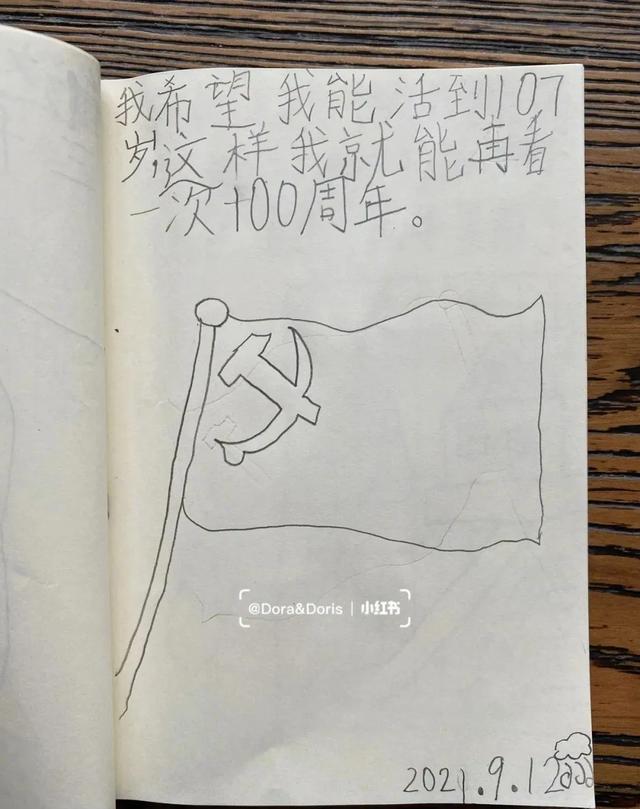 我希望我能活到107
岁,这样我就能再看
一次100周年。
@Dora&Doris | 小红书
2021.9.12